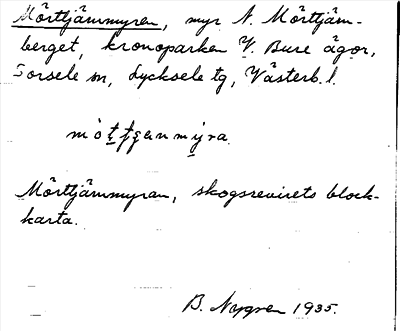 Mörttjärnmyren, myr N. Mörttjärn-
berget, kronoparken V. Bure ägor,
Sorsele sn, Lycksele tg, Västerb. l.
Mörttjärnmyran, skogsrevirets block-
karta.
B. Nygren 1935.